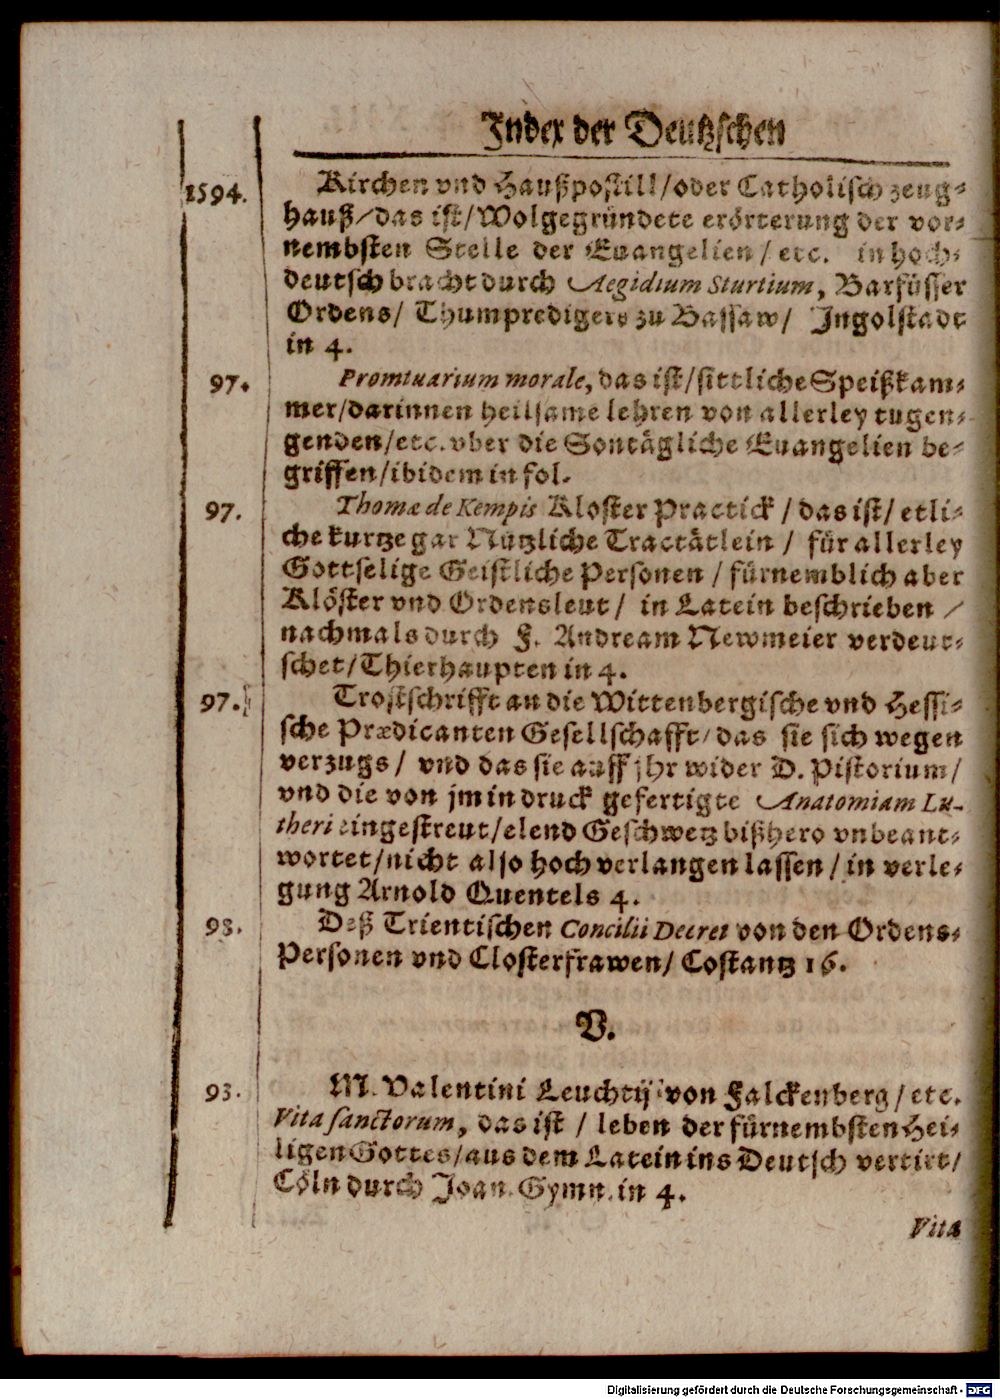 Index der Deutzschen
1594. Kirchen vnd Haußpostill/oder Catholisch zeug-
hauß/das ist/Wolgegründete erörterung der vor-
nembsten Stelle der Euangelien/etc. in hoch-
deutsch bracht durch Aegidium Sturtium, Barfüsser
Ordens/ Thumpredigers zu Bassaw/ Ingolstadt
in 4.
97. Promtuarium morale, das ist/sittliche Speißkam-
mer/darinnen heilsame lehren von allerley tugen-
genden/etc. vber die Sontägliche Euangelien be-
griffen/ibidem in fol.
97. Thomæ de Kempis Kloster Practick/das ist/etli-
che kurtze gar Nützliche Tractätlein/ für allerley
Gottselige Geistliche Personen/fürnemblich aber
Klöster vnd Ordensleut/ in Latein beschrieben/
nachmals durch F. Andream Newmeier verdeut-
schet/Thierhaupten in 4.
97. Trostschrifft an die Wittenbergische vnd Hessi-
sche Prædicanten Gesellschafft/das sie sich wegen
verzugs/ vnd das sie auff jhr wider D. Pistorium/
vnd die von jm in druck gefertigte Anatomiam Lu-
theri eingestreut/elend Geschwetz bißhero vnbeant-
wortet/nicht also hoch verlangen lassen/in verle-
gung Arnold Quentels 4.
93. Deß Trientischen Concilii Decret von den Ordens-
Personen vnd Closterfrawen/ Costantz 16.
V.
93. M. Valentini Leuchtij von Falckenberg/etc.
Vita sanctorum, das ist/ leben der fürnembsten Hei-
ligen Gottes/aus dem Latein ins Deutsch vertirt/
Cöln durch Joan. Gymn. in 4.
Vita
Digitalisierung gefördert durch die Deutsche Forschungsgemeinschaft - DFG